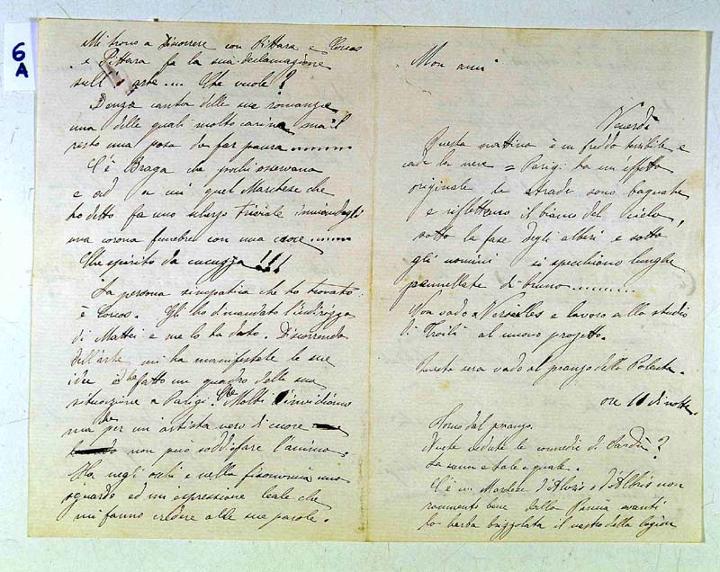 6
A
Mi trovo a discorrere con Pittara e Corcos
e Pittara fa la sua declamazione
sull' arte... Che vuole?
Denza canta delle sue romanze
una delle quali molto carina ma il
resto una posa da far paura
C'è Braga che pochi osservano
e ad un quel Marchese che
ho detto fa uno scherzo triviale inviandogli
una corona funebre con una
Che spirito da cucuzza!!!
La persona simpatica che ho trovato
è Corcos. Gli ho dimandato l'indirizzo
di Mattei e me lo ha dato. Discorrendo
dell'arte mi ha manifestate le sue
idee e ha fatto un quadro della sua
situazione a Parigi. Molti invidiano
ma per un artista vero di cuore
non può soddisfare l'animo.
Ha negli occhi e nella fisonomia uno
sguardo ed un espressione leale che
mi fanno credere alle sue parole.
Mon ami
Venerdì
Questa mattina è un freddo terribile e
cade la neve = Parigi ha un'effetto
originale le strade sono bagnate
e riflettono il bianco del cielo,
sotto la fase degli alberi e sotto
gli uomini si specchiano lunghe
pennellate di bruno
Non vado a Versailles e lavoro allo studio
di Troili al nuovo progetto.
Questa sera vado al pranzo della Polenta.
ore 10 di notte
Torno dal pranzo.
Avete vedute le commedie di Sardou?
La scena è tale e quale.
C'è un Marchese d'Alvis o d'Albis non
rammento bene dalla pancia avanti
la barba brizzolata il nastro della legion